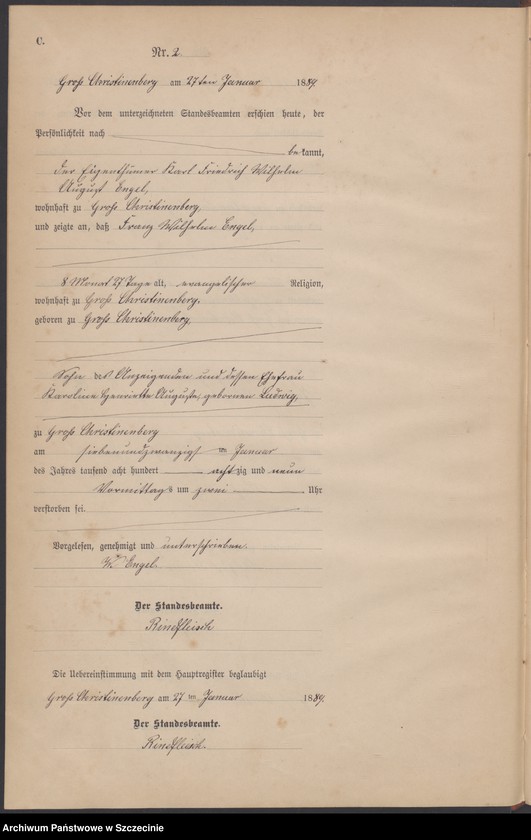 C.
Nr. 2
Groß Christinenberg am 27ten Januar 1889.
Vor dem unterzeichneten Standesbeamten erschien heute, der
Persönlichkeit nach
be kannt,
der Eigenthümer Karl Friedrich Wilhelm
August Engel,
wohnhaft zu Groß Christinenberg,
und zeigte an, daß Franz Wilhelm Engel,
8 Monat 27 Tage alt, evangelischer Religion,
wohnhaft zu Groß Christinenberg,
geboren zu Groß Christinenberg,
Sohn des Anzeigenden und dessen Ehefrau
Karoline Henriette Auguste, gebornen Ludwig,
zu Groß Christinenberg
am siebenundzwanzigst en Januar
des Jahres tausend acht hundert acht zig und neun
Vormittags um zwei Uhr
verstorben sei.
Vorgelesen, genehmigt und unterschrieben.
W. Engel.
Der Standesbeamte.
Rindfleisch
Die Uebereinstimmung mit dem Hauptregister beglaubigt
Groß Christinenberg am 27 ten Januar 1889.
Der Standesbeamte.
Rindfleisch.
Archiwum Państwowe w Szczecinie